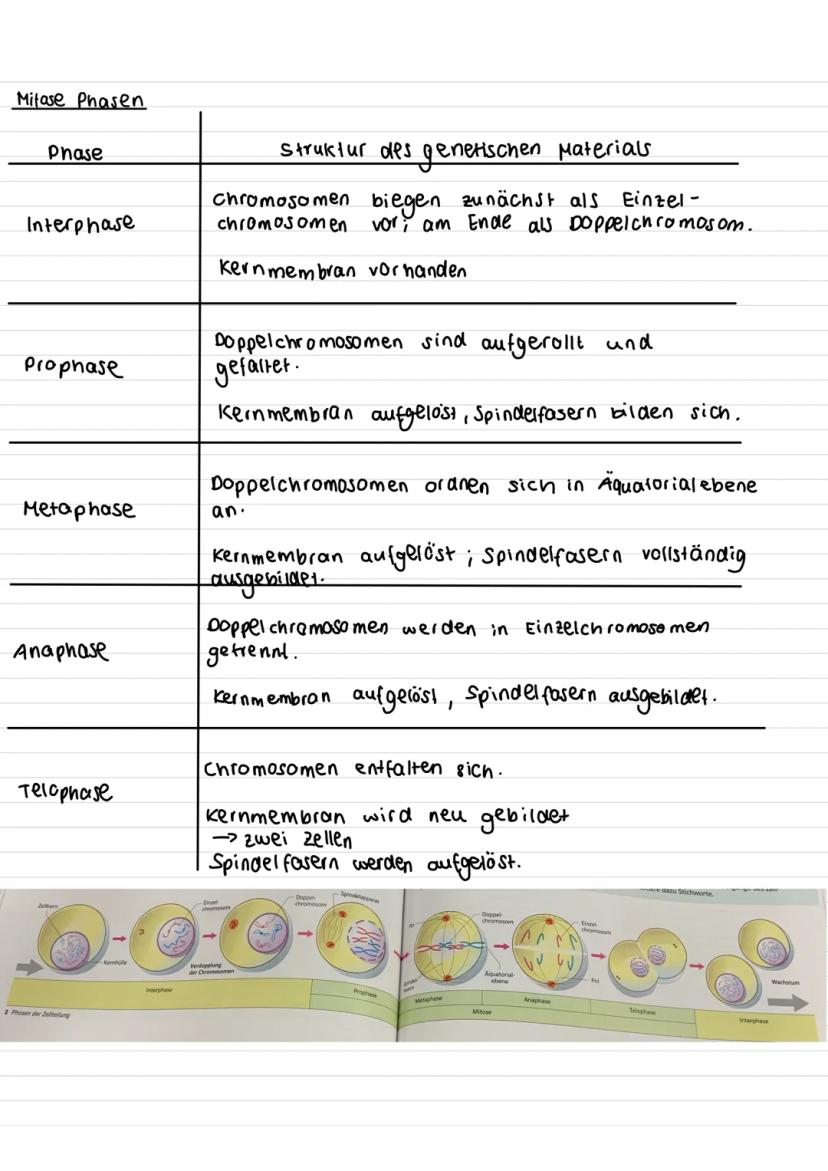 Mitose Phasen
Phase
Struktur des genetischen Materials
Interphase
Chromosomen biegen zunächst als Einzel-
chromosomen vor; am Ende als Doppelchromosom.
Kernmembran vorhanden
Prophase
Doppelchromosomen sind aufgerollt und
gefaltet.
Kernmembran aufgelöst, Spindelfasern bilden sich.
Metaphase
Doppelchromosomen ordnen sich in Äquatorialebene
an.
Kernmembran aufgelöst; Spindelfasern vollständig
ausgebildet.
Anaphase
Doppelchromosomen werden in Einzelchromosomen
getrennt.
Kernmembran aufgelöst, Spindelfasern ausgebildet.
Telophase
Chromosomen entfalten sich.
Kernmembran wird neu gebildet
→ zwei Zellen
Spindelfasern werden aufgelöst.
dazu Stichworte.
Zellkern
Einzel-
chromosom
Doppel-
chromosom
Spindelapparat
Kernhülle
Verdopplung
der Chromosomen
Doppel-
chromosom
Einzel-
chromosom
Äquatorial-
ebene
Pol
Wachstum
Interphase
Prophase
Metaphase
Anaphase
Telophase
Interphase
Mitose
2 Phasen der Zellteilung